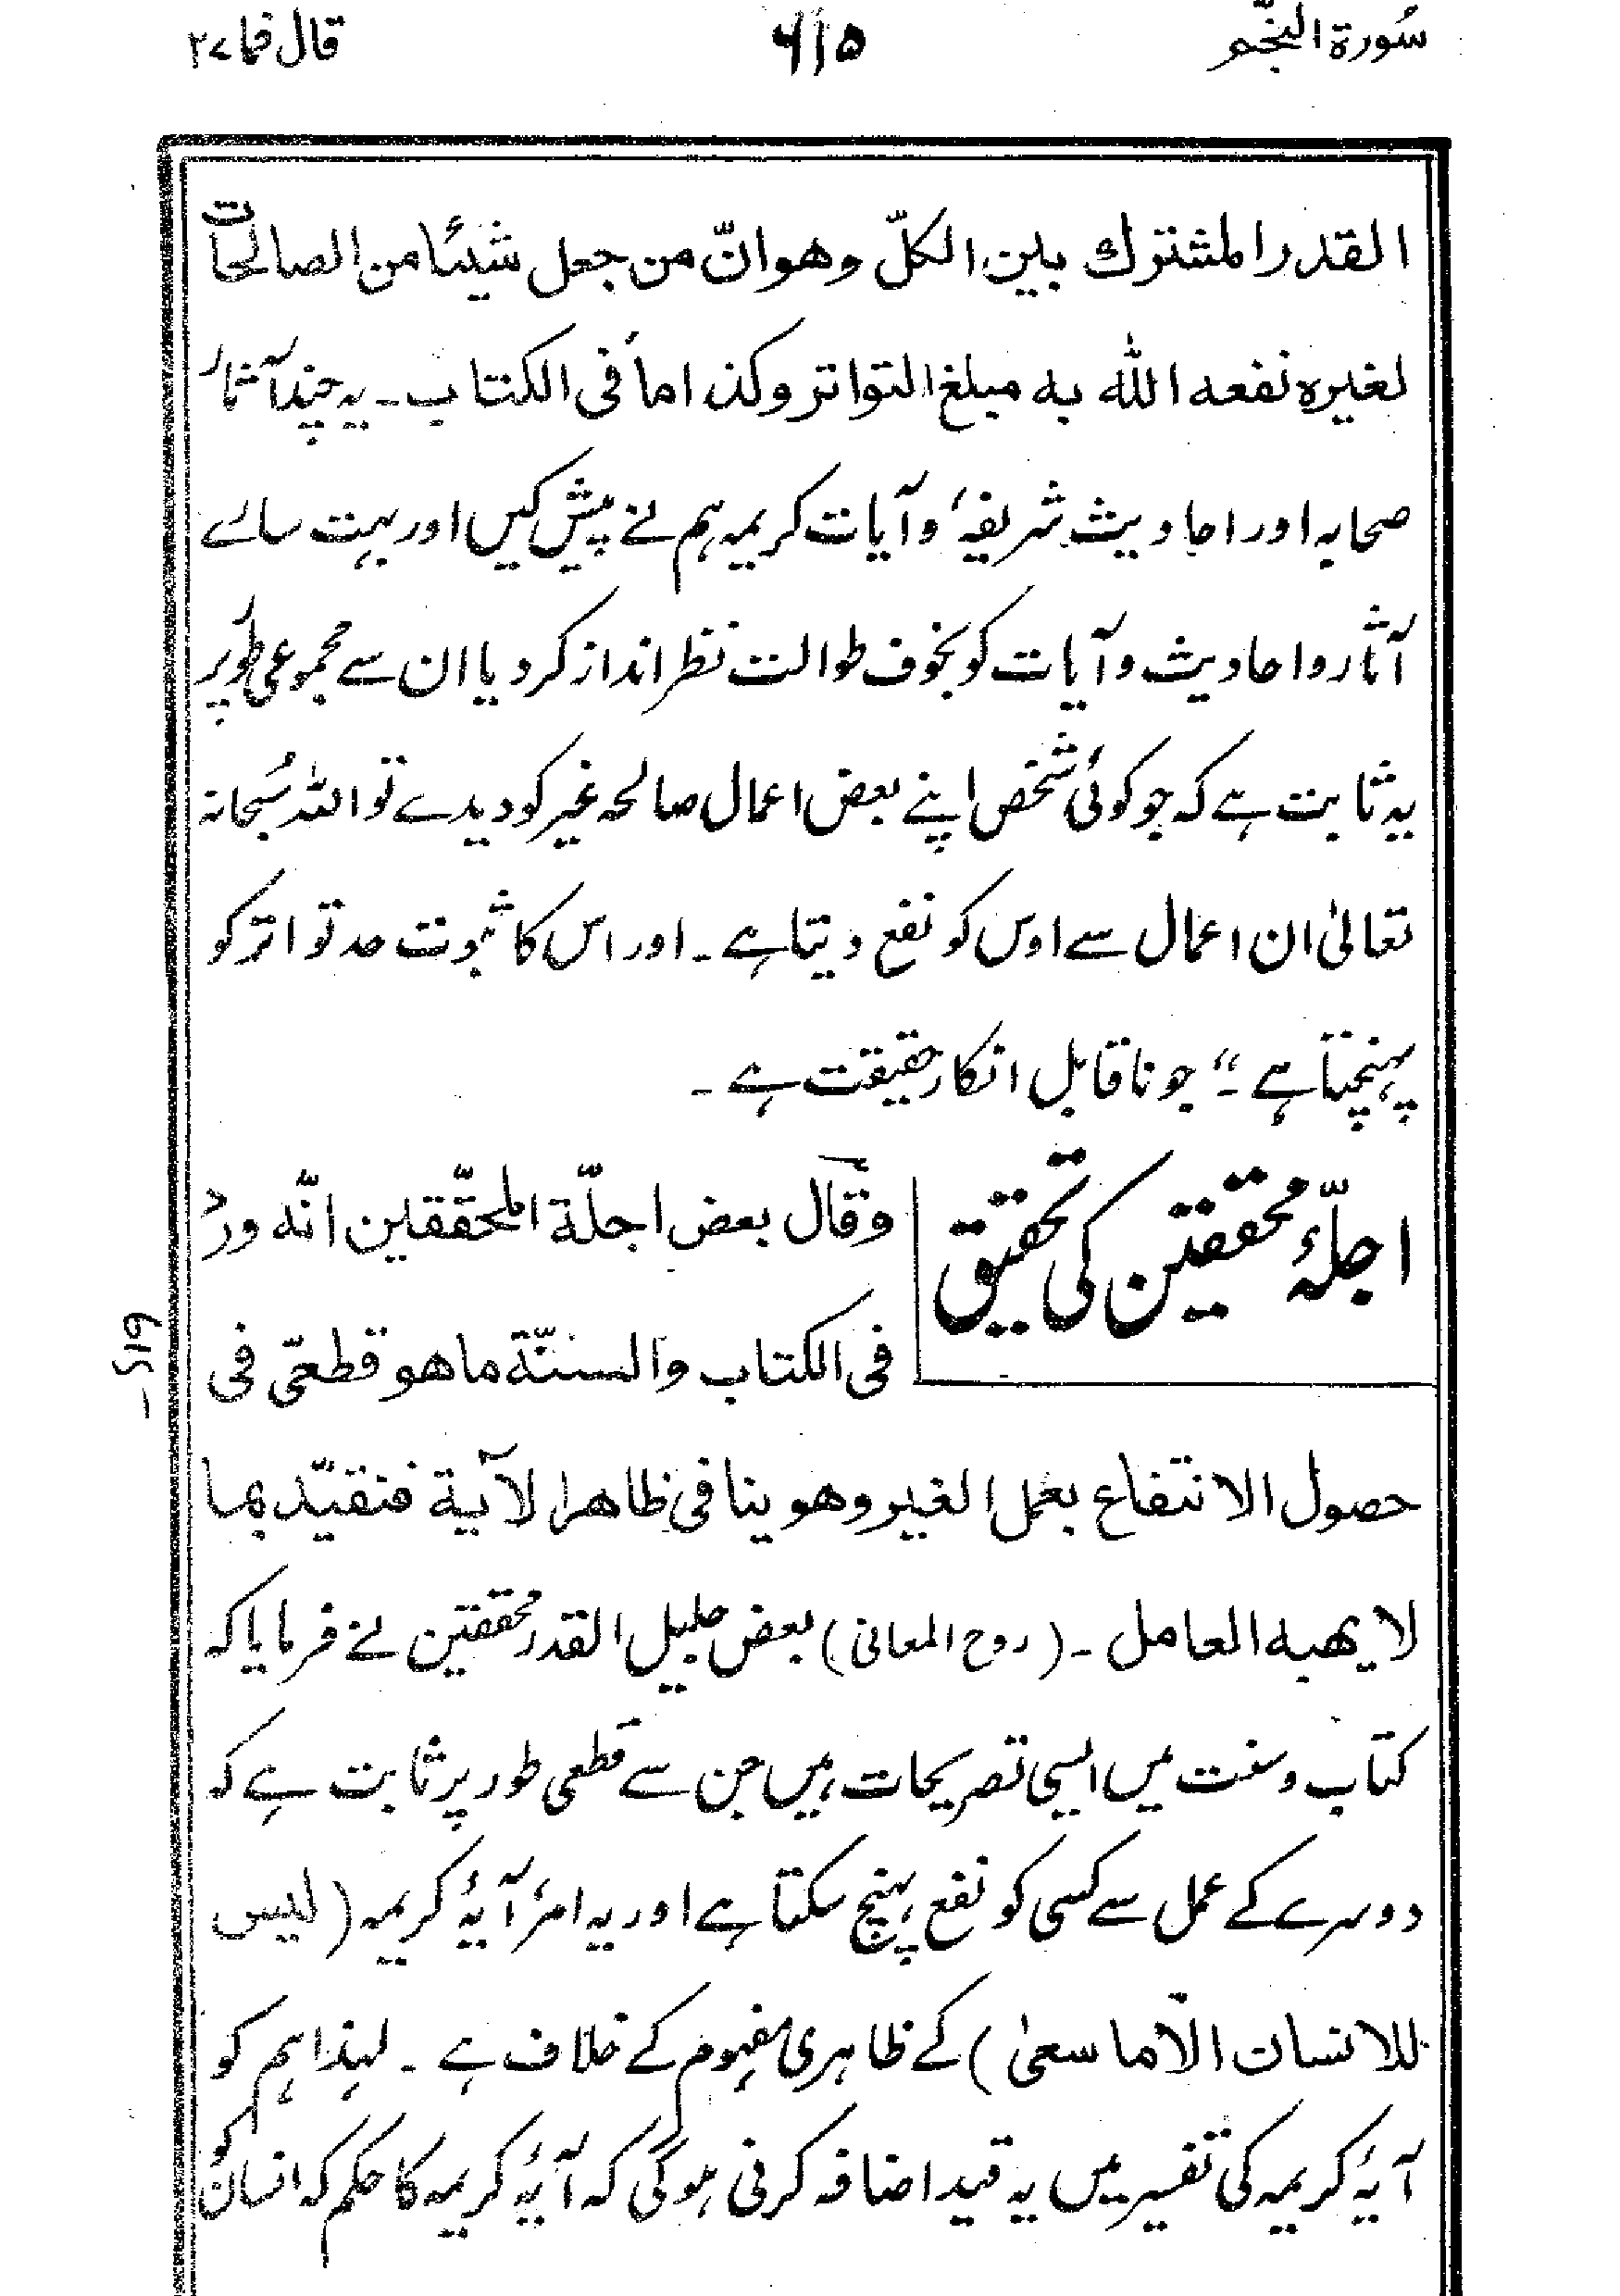 سُورة النّجم
۶۱۵
قال فما ۲۷
القدر المشترك بين الكلّ وهو انّ من جعل شيئا من الصالحات
لغيره نفعه الله به مبلغ التواتر وكذا ما فى الكتاب ۔ یہ چند آثار
صحابہ اور احادیث شریفہ و آیات کریمہ ہم نے پیش کیں اور بہت سارے
آثار و احادیث و آیات کو بخوف طوالت نظر انداز کر دیا ان سے مجموعی طور پر
یہ ثابت ہے کہ جو کوئی شخص اپنے بعض اعمال صالحہ غیر کو دیدے تو اللہ سُبحانہ
تعالیٰ ان اعمال سے اوس کو نفع دیتا ہے ۔ اور اس کا ثبوت حد تواتر کو
پہنچتا ہے ۔“ جو ناقابل انکار حقیقت ہے ۔
اجلّۂ محققین کی تحقیق
وقال بعض اجلّة المحقّقين انّه ورد
فى الكتاب والسنّة ما هو قطعّى فى
حصول الانتفاع بعمل الغير وهو ينافى ظاهر الآية فتقيّد بما
لا يهبه العامل ۔ (روح المعانی) بعض جلیل القدر محققین نے فرمایا کہ
کتاب و سنت میں ایسی تصریحات ہیں جن سے قطعی طور پر ثابت ہے کہ
دوسرے کے عمل سے کسی کو نفع پہنچ سکتا ہے اور یہ امر آیۂ کریمہ (لیس
للانسان الّا ما سعیٰ) کے ظاہری مفہوم کے خلاف ہے ۔ لہذا ہم کو
آیۂ کریمہ کی تفسیر میں یہ قید اضافہ کرنی ہوگی کہ آیۂ کریمہ کا حکم کہ انسان کو